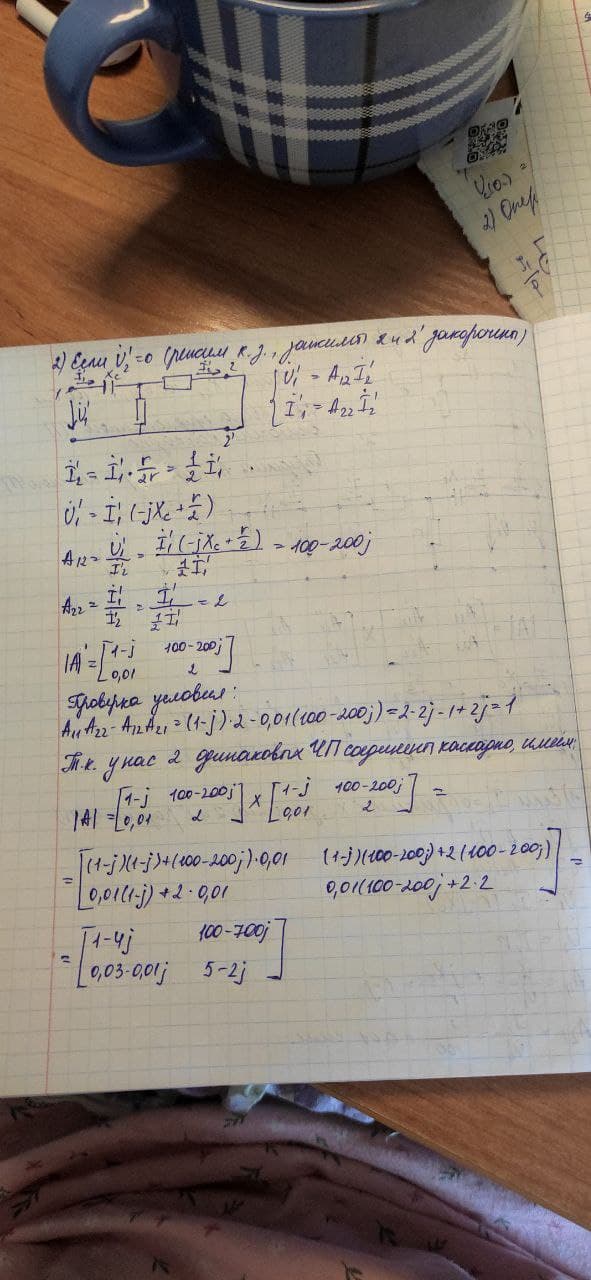 2) Если U̇₂'=0 (режим к.з., зажимы 2 и 2' закорочены)
1 İ₁' Xc İ₂' 2
U̇₁'
2'
{ U̇₁' = A₁₂ İ₂'
İ₁' = A₂₂ İ₂'
İ₂' = İ₁' · r/2r = 1/2 İ₁'
U̇₁' = İ₁' (-jXc + r/2)
A₁₂ = U̇₁'/İ₂' = İ₁'(-jXc + r/2) / 1/2 İ₁' = 100-200j
A₂₂ = İ₁'/İ₂' = İ₁' / 1/2 İ₁' = 2
|A|' = [1-j 100-200j
0,01 2]
Проверка условия:
A₁₁A₂₂ - A₁₂A₂₁ = (1-j)·2 - 0,01(100-200j) = 2-2j-1+2j = 1
Т.к. у нас 2 одинаковых ЧП соединены каскадно, имеем:
|A| = [1-j 100-200j
0,01 2] × [1-j 100-200j
0,01 2] =
= [(1-j)(1-j)+(100-200j)·0,01 (1-j)(100-200j)+2(100-200j)
0,01(1-j)+2·0,01 0,01(100-200j+2·2] =
= [1-4j 100-700j
0,03-0,01j 5-2j]
2) Опер